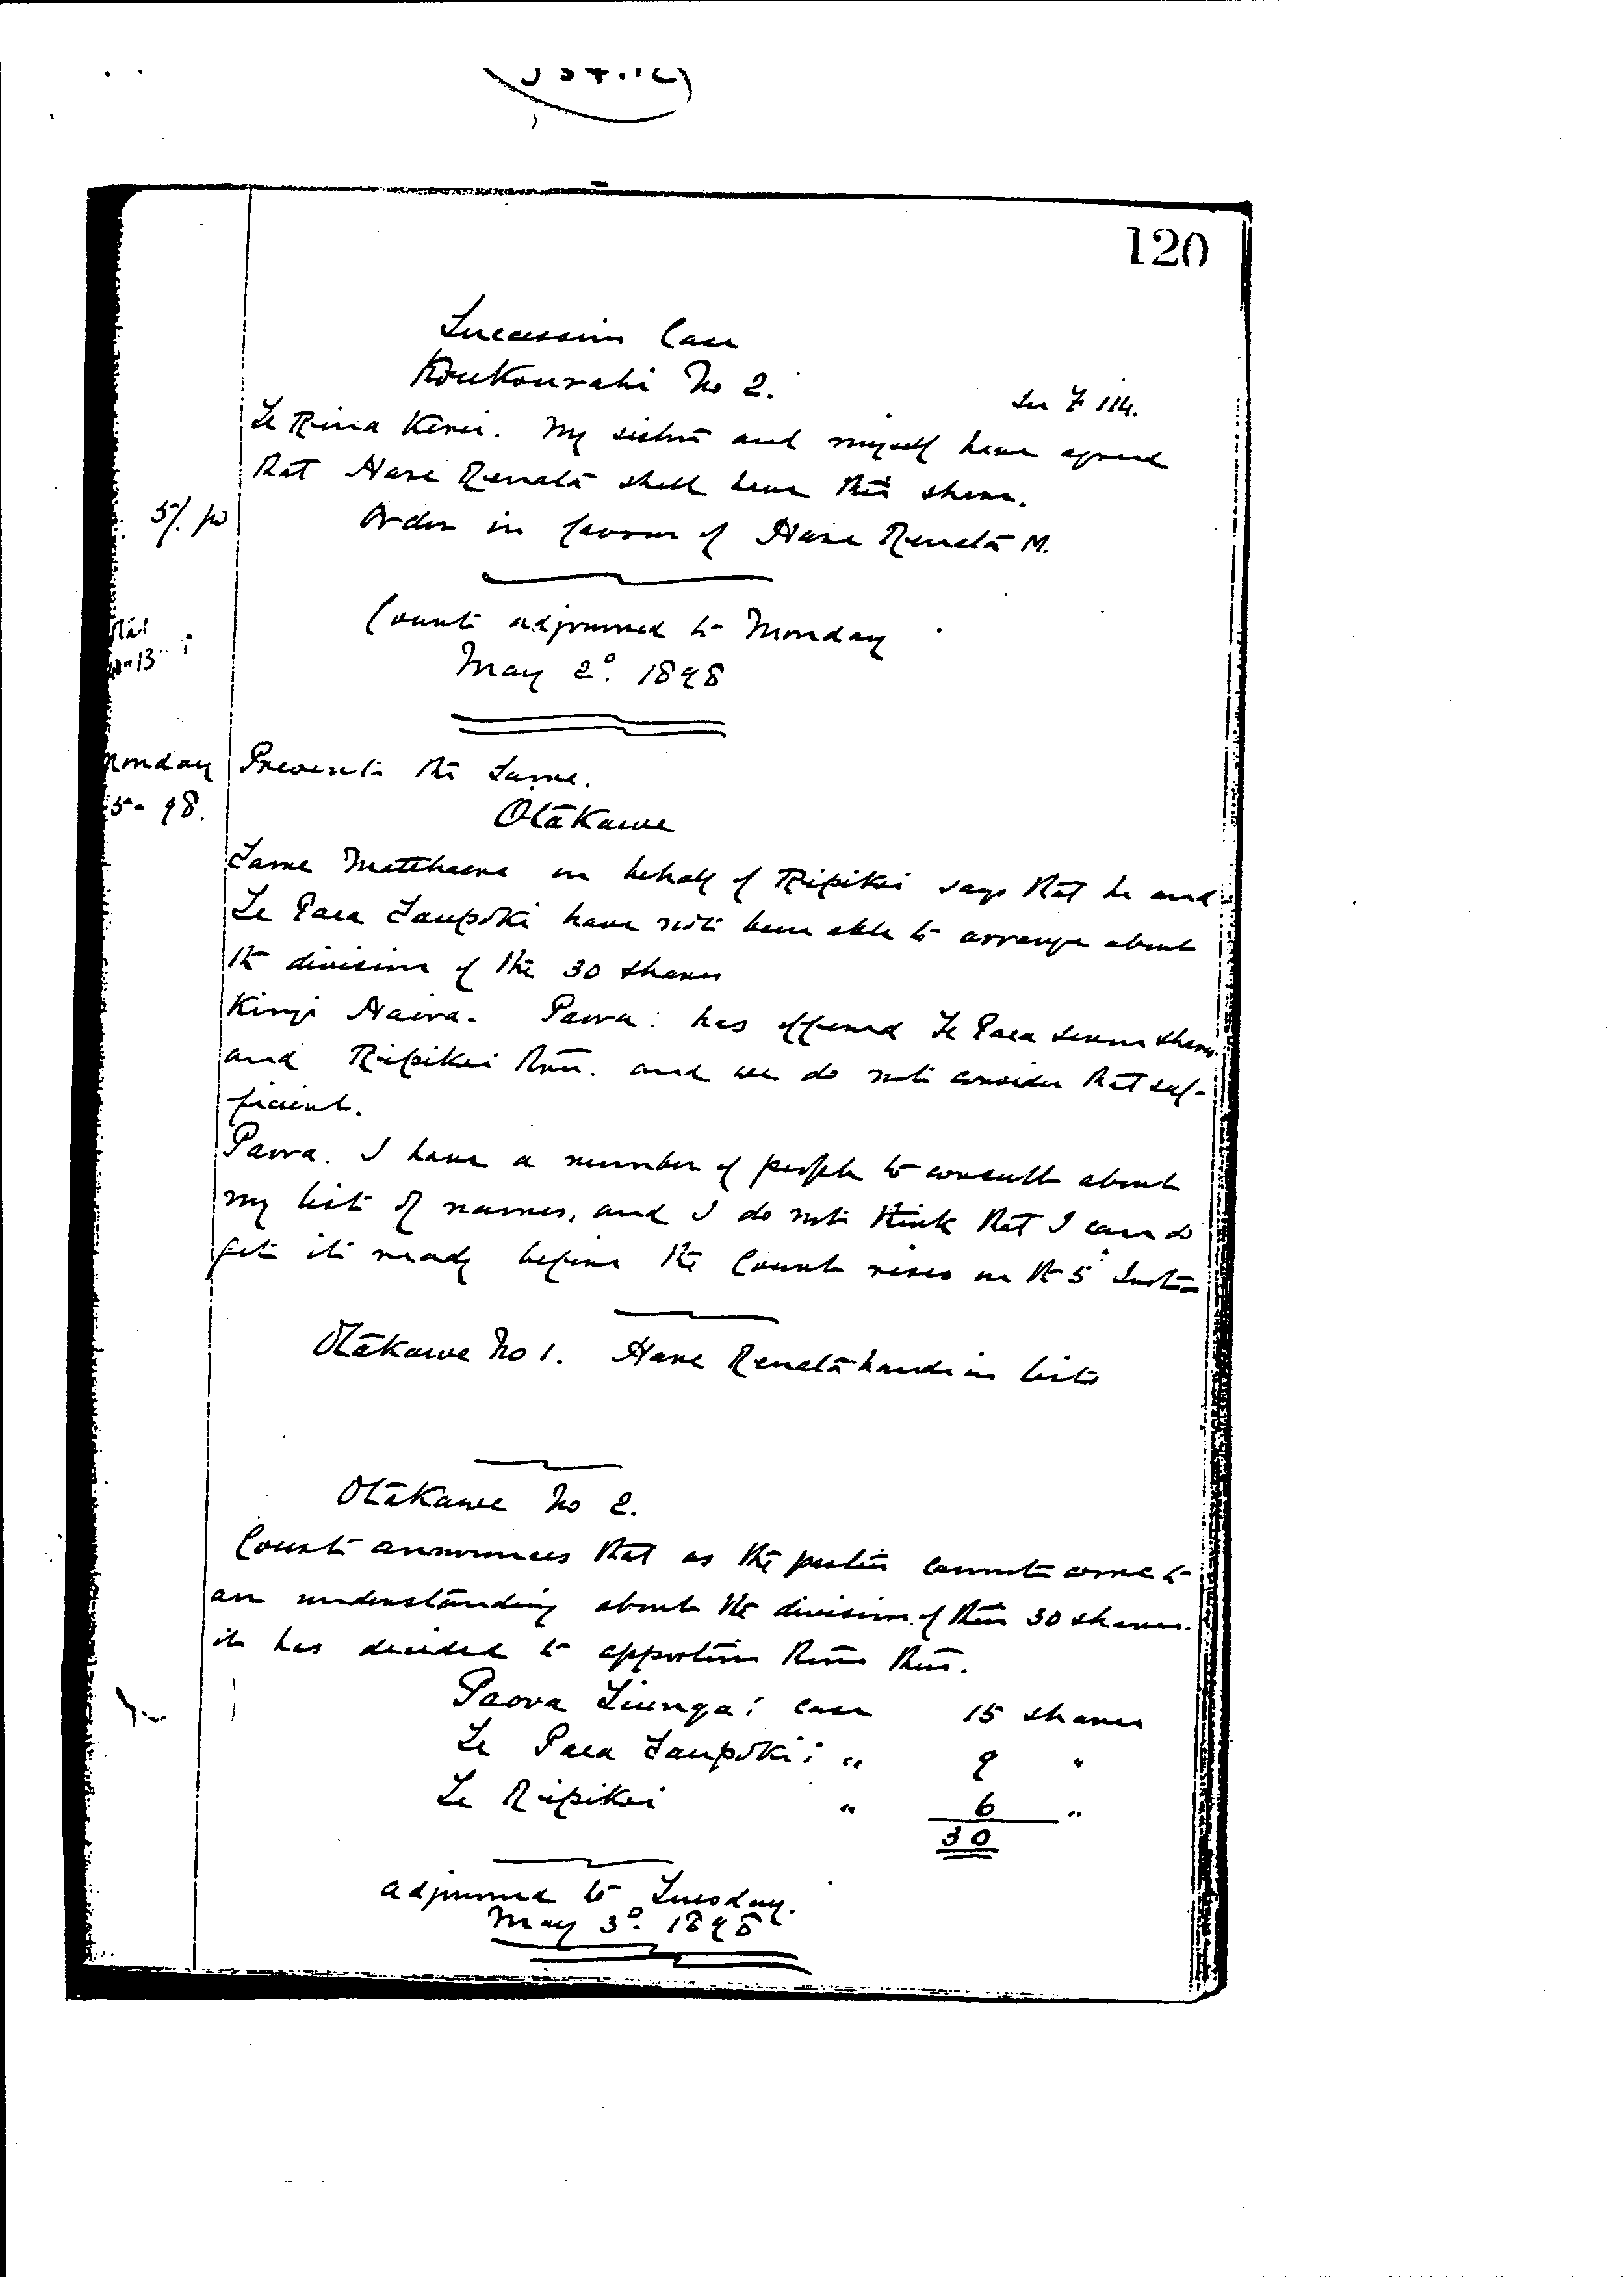 120
Succession Case
Koukourahi No 2.
See F 114.
Te Rina Kerei. My sister and myself have agreed
that Hare Renata shall have this share.
5/. pd
Order in favour of Hare Renata M.
Court adjourned to Monday
May 2º. 1898
Monday
Present the same.
5-98.
Otakawe
Tame on behalf of Ripikoi says that he and
Te Paea Taupoki have not been able to arrange about
the division of the 30 shares
Kingi Haira. Paora: has offered Te Paea seven shares
and Ripikoi three. and we do not consider that suf-
ficient.
Paora. I have a number of people to consult about
my list of names, and I do not think that I can do
get it ready before the Court rises on the 5 Inst=
Otakawe No 1. Hare Renata hands in lists
Otakawe No 2.
Court announces that as the parties cannot come to
an understanding about the division of their 30 shares.
it has decided to apportion them thus.
Paora Tiunga: case 15 shares
Te Paea Taupoki: " 9 "
Te Ripikoi " 6 "
30
adjourned to Tuesday.
May 3º. 1898